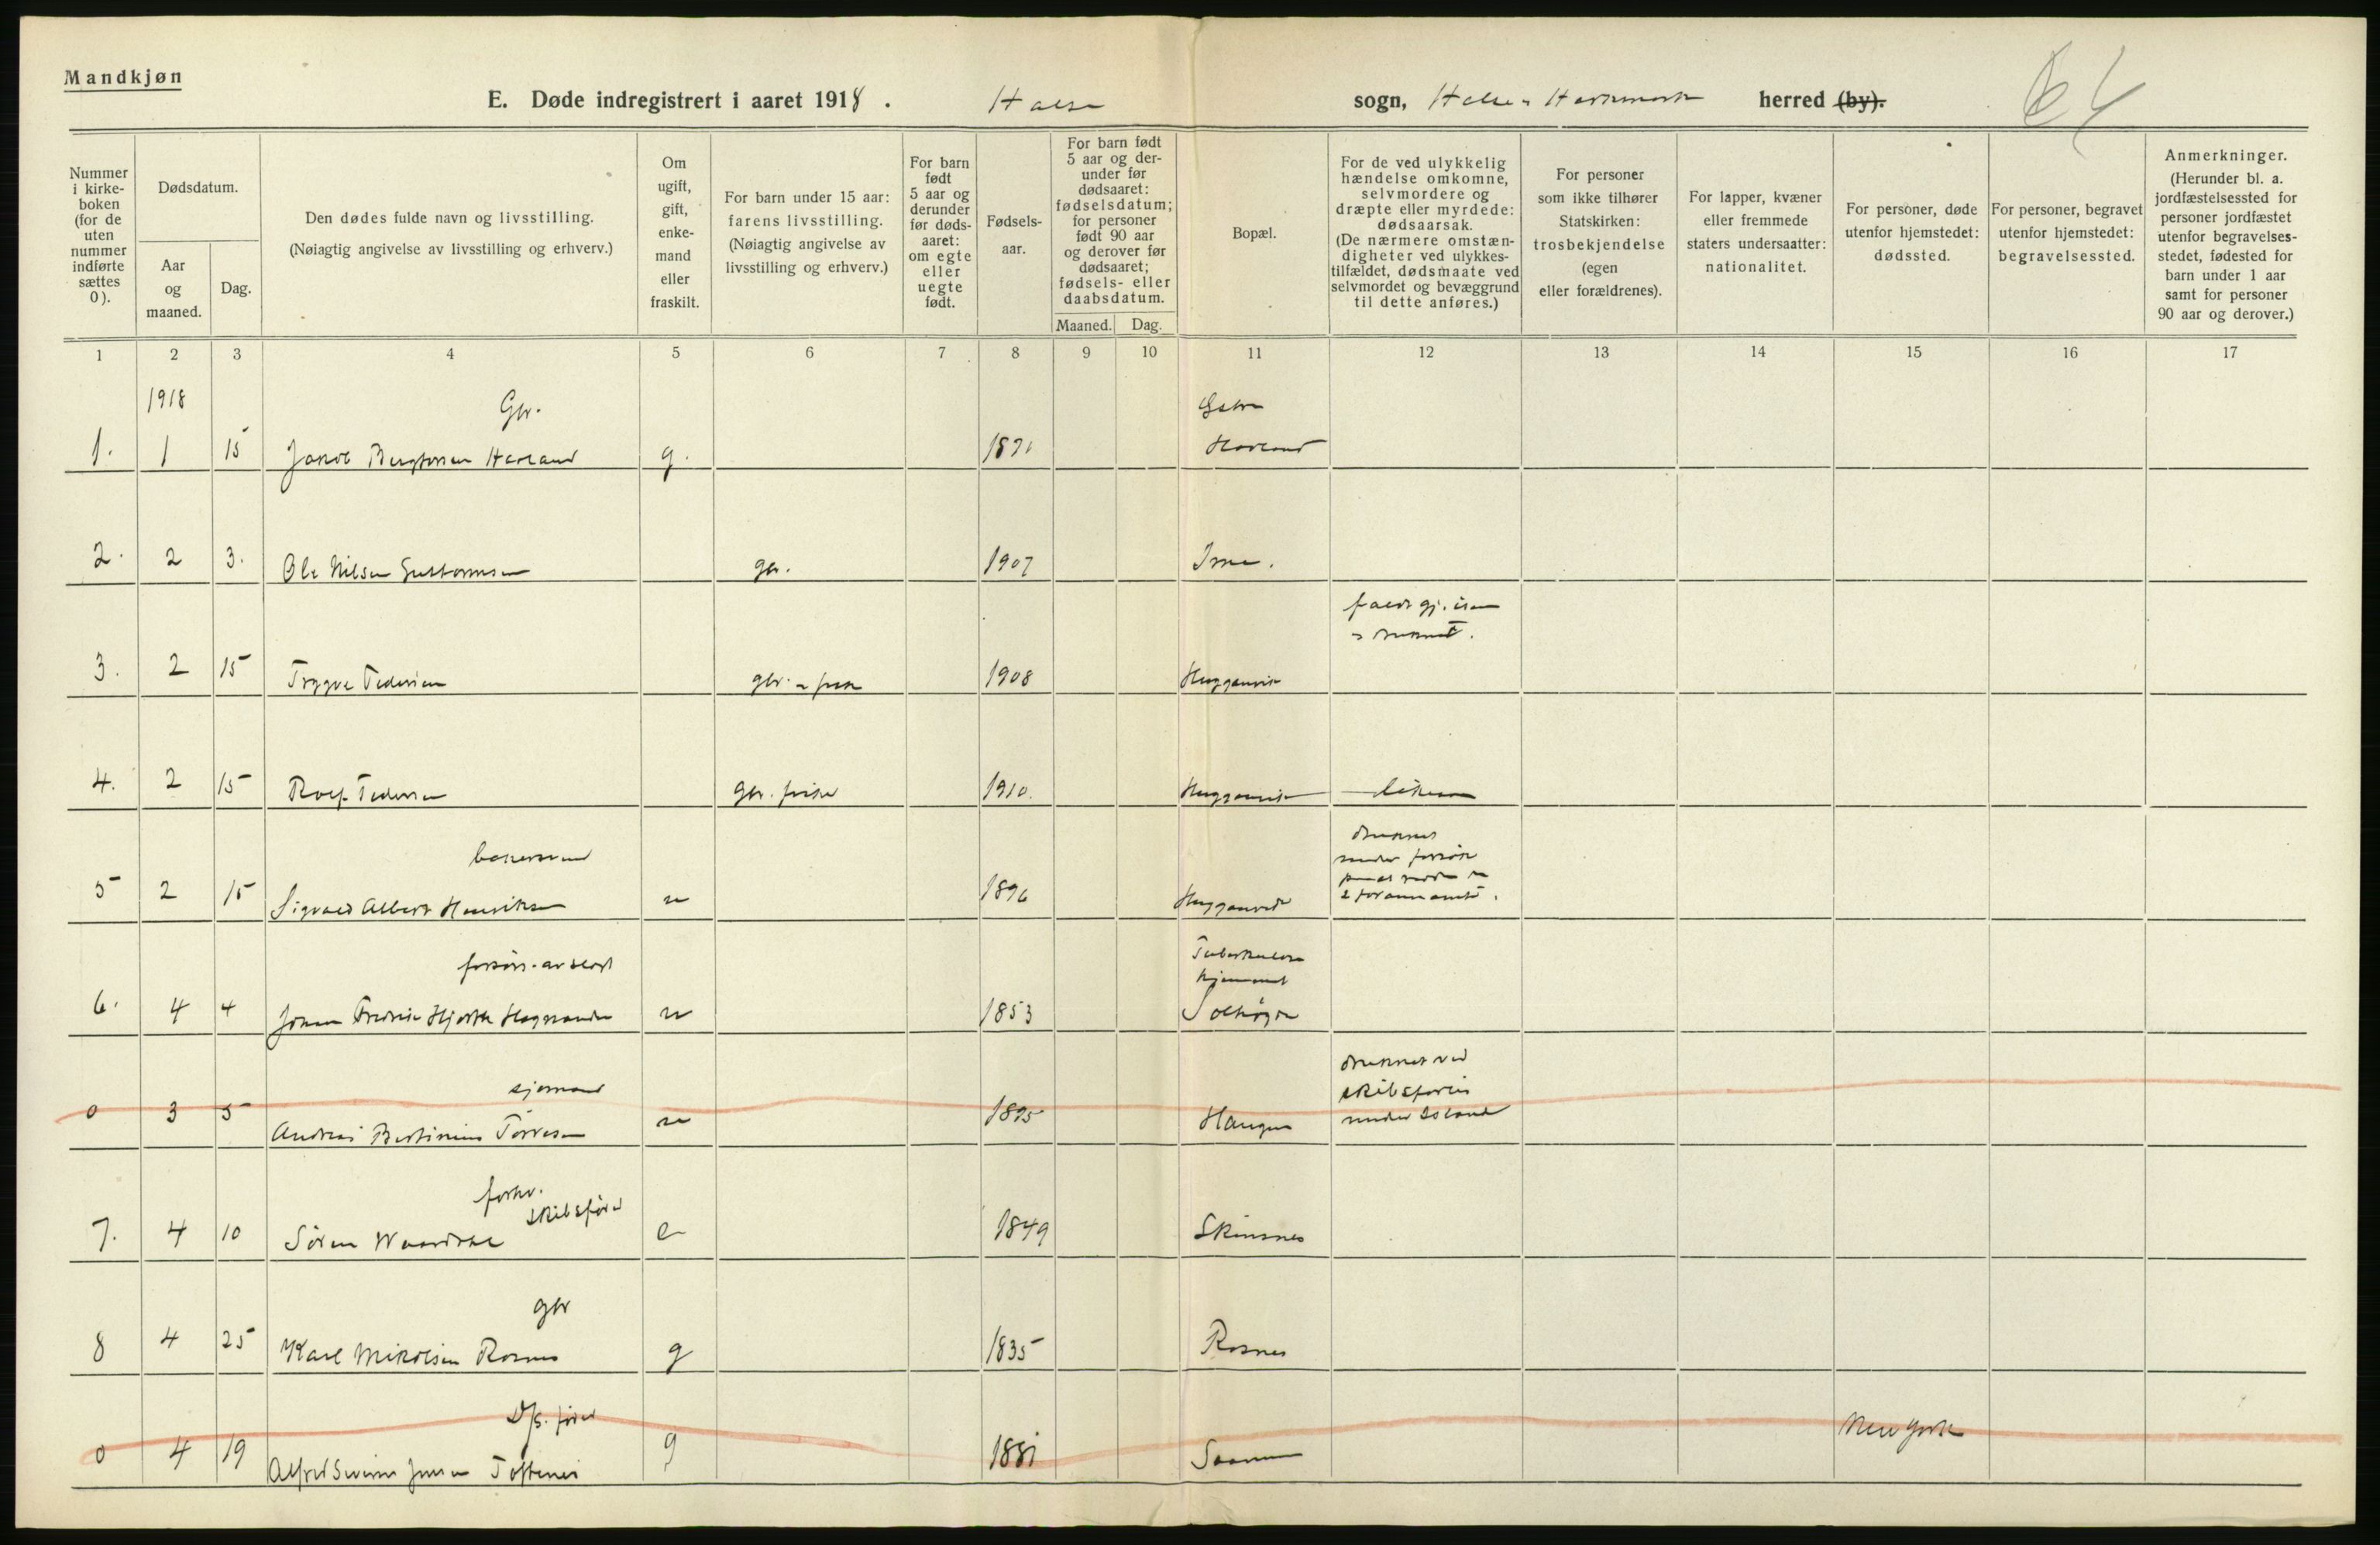 Mandkjøn
E. Døde indregistrert i aaret 1918. Halse sogn, Halse herred (by).
64
Nummer i kirke- boken (for de uten nummer indførte sættes 0).
Dødsdatum.
Aar og maaned.
Dag.
Den dødes fulde navn og livsstilling.
(Nøiagtig angivelse av livsstilling og erhverv.)
Om ugift, gift, enke- mand eller fraskilt.
For barn under 15 aar: farens livsstilling. (Nøiagtig angivelse av livsstilling og erhverv.)
For barn født 5 aar og derunder før døds- aaret: om egte eller uegte født.
Fødsels- aar.
For barn født 5 aar og der- under før dødsaaret: fødselsdatum; for personer født 90 aar og derover før dødsaaret; fødsels- eller daabsdatum.
Maaned. Dag.
Bopæl.
For de ved ulykkelig hændelse omkomne, selvmordere og dræpte eller myrdede: dødsaarsak. (De nærmere omstæn- digheter ved ulykkes- tilfældet, dødsmaate ved selvmordet og bevæggrund til dette anføres.)
For personer som ikke tilhører Statskirken: trosbekjendelse (egen eller forældrenes).
For lapper, kvæner eller fremmede staters undersaatter: nationalitet.
For personer, døde utenfor hjemstedet: dødssted.
For personer, begravet utenfor hjemstedet: begravelsessted.
Anmerkninger. (Herunder bl. a. jordfæstelsessted for personer jordfæstet utenfor begravelses- stedet, fødested for barn under 1 aar samt for personer 90 aar og derover.)
1 2 3 4 5 6 7 8 9 10 11 12 13 14 15 16 17
1918
Gbr.
1. 1 15 Jakob Havland g. 1871 Havland
2. 2 3. Ole Nilsen Guttormsen gbr. 1907
3. 2 15 Trygve Pedersen gbr. 1908
4. 2 15 Rolf Pedersen gbr. fisker 1910.
druknet
under forsøk
5 2 15 Sigvald Albert Henriksen u 1896
Tuberkulose
hjemmet
6. 4 4 Johan Fredrik Hjorth u 1853 Solhøgda
sjømand
druknet ved
skibsforlis
under Island
0 3 5 Andreas Bertinius u 1895 Haugen
forhv.
skibsfører
7. 4 10 Søren e 1849 Skinsnes
gbr
8 4 25 Karl Mikalsen Rosnes g 1835 Rosnes
D/s. fører
0 4 19 Alfred Severin Jensen g 1881 New York